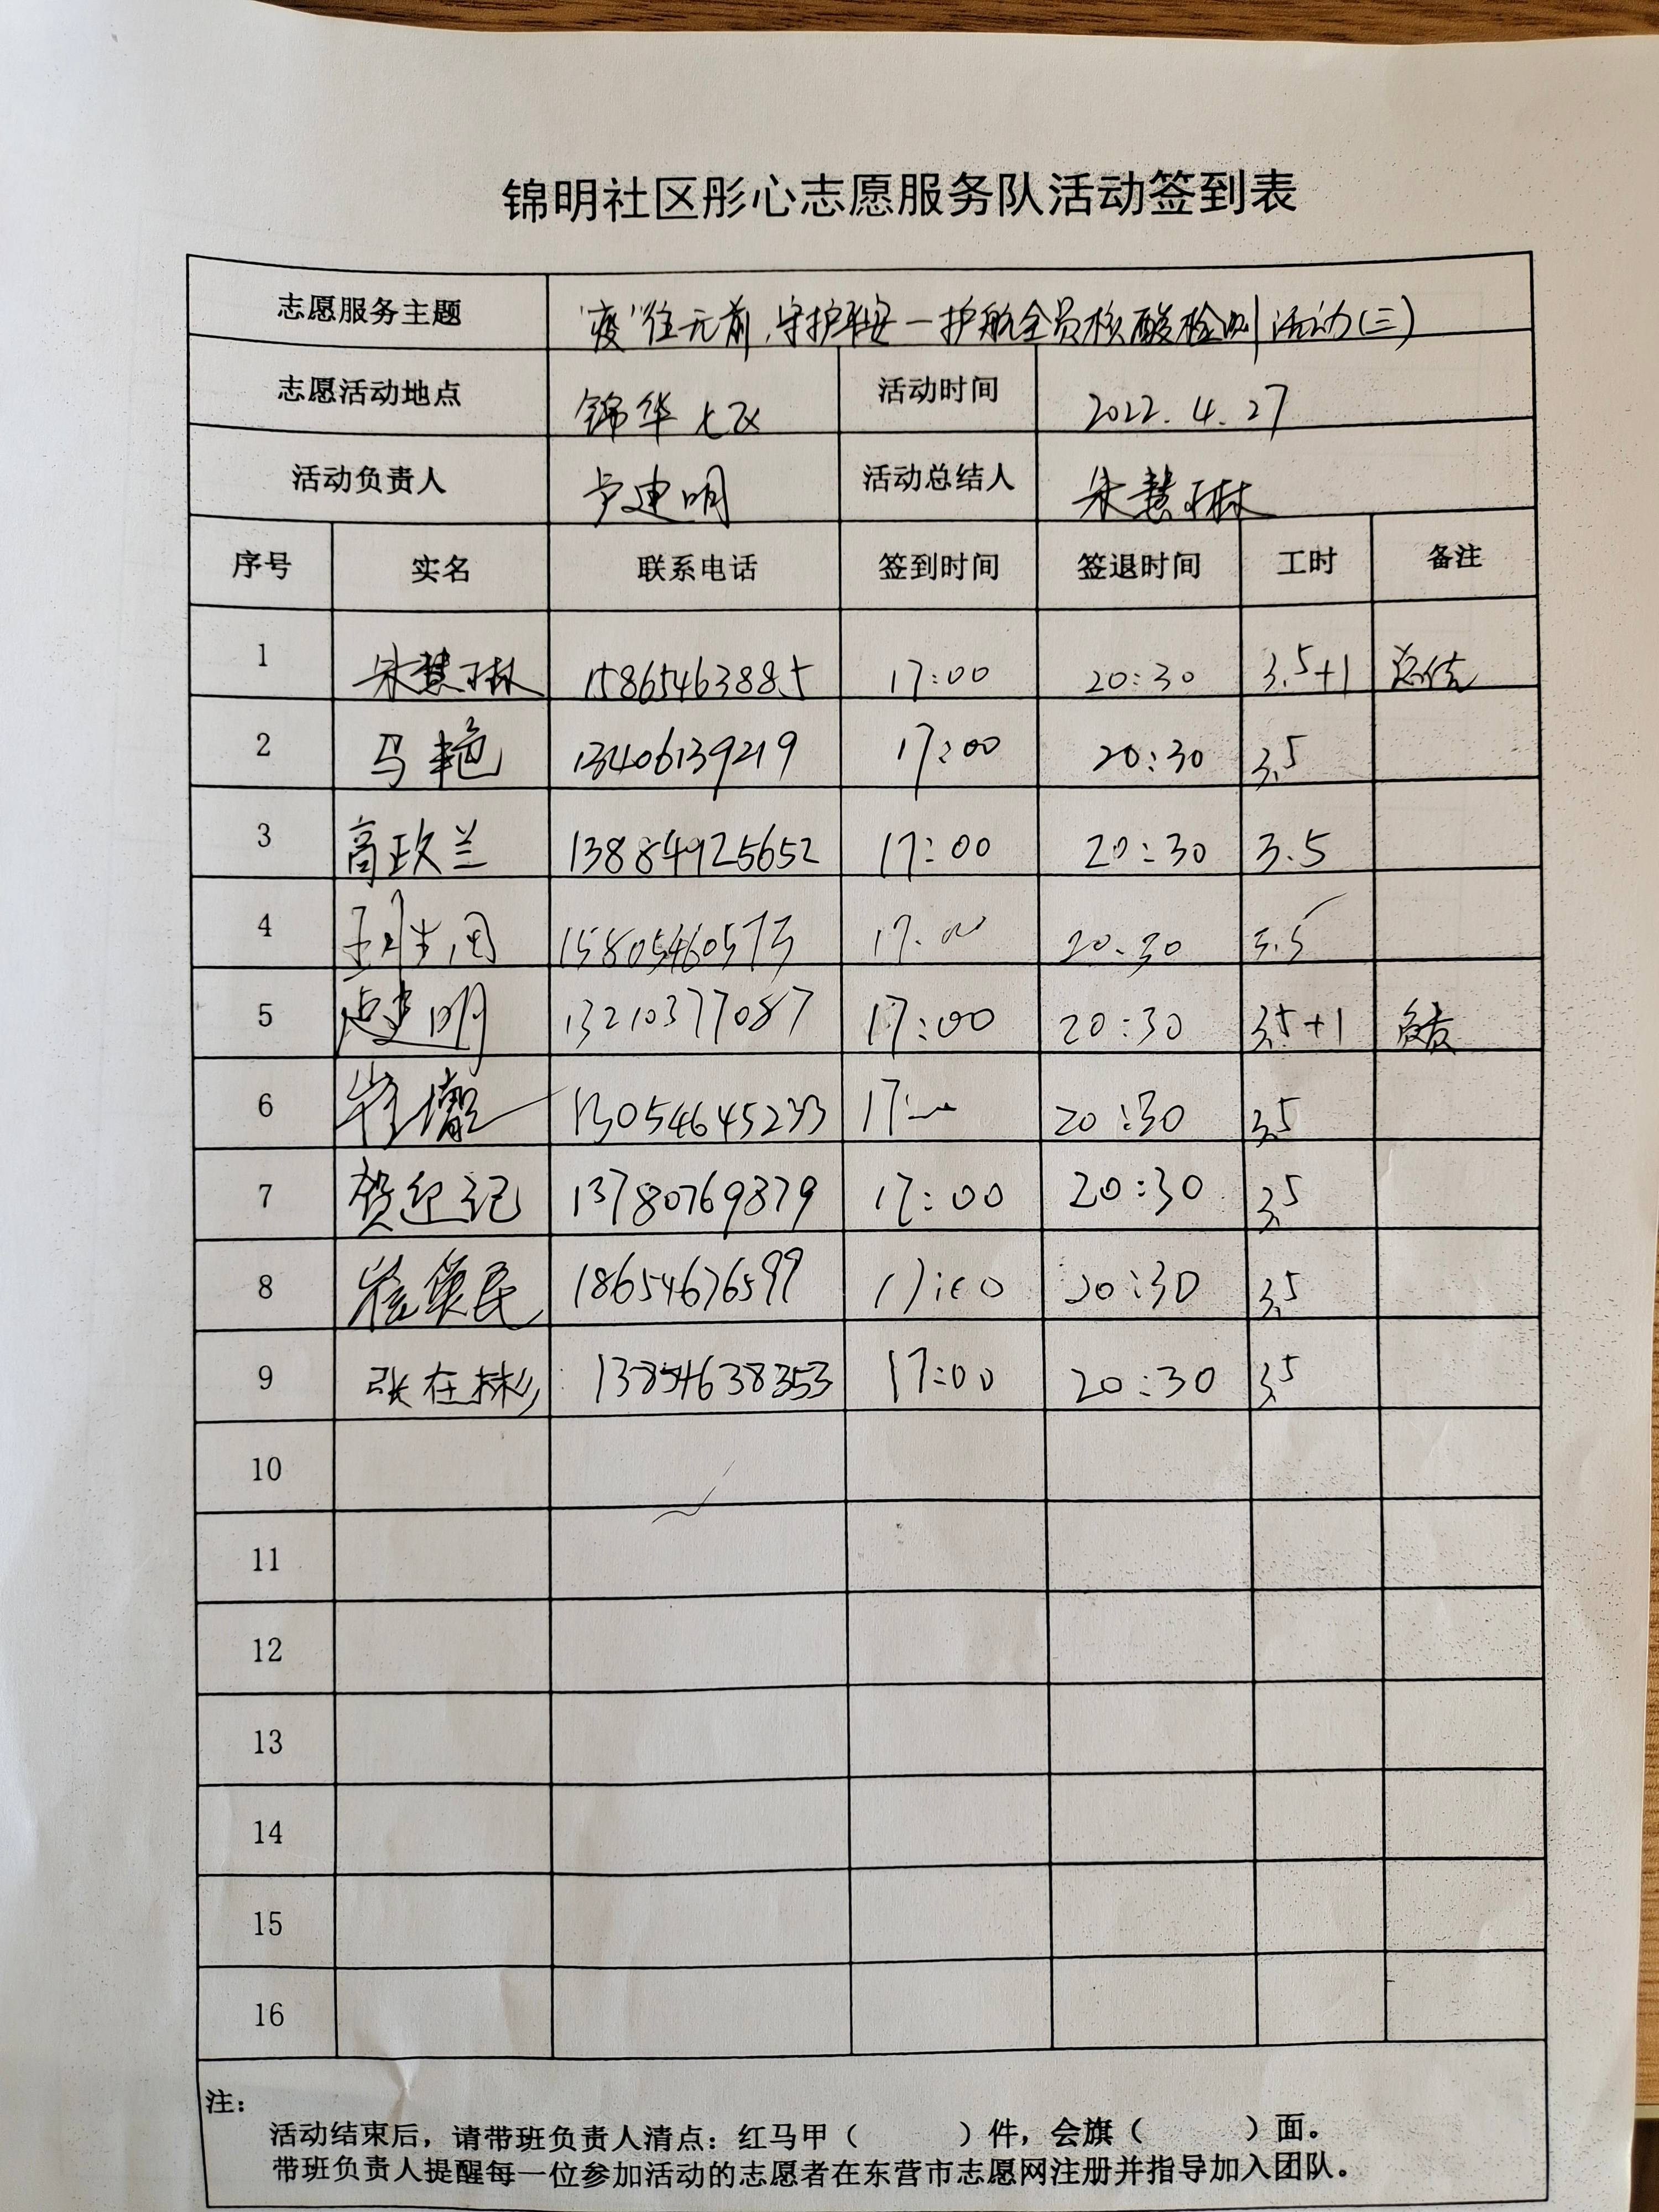 锦明社区彤心志愿服务队活动签到表
志愿服务主题 "疫"往无前,守护平安—护航全员核酸检测活动(三)
志愿活动地点 锦华七区 活动时间 2022.4.27
活动负责人 卢建明 活动总结人 朱慧琳
序号 实名 联系电话 签到时间 签退时间 工时 备注
1 朱慧琳 15865463885 17:00 20:30 3.5+1 总结
2 马艳 13406139219 17:00 20:30 3.5
3 高政兰 13884925652 17:00 20:30 3.5
4 15805460573 17:00 20:30 3.5
5 卢建明 13210377087 17:00 20:30 3.5+1 负责
6 13054645233 17: 20:30 3.5
7 贺迎记 13780769879 17:00 20:30 3.5
8 18654676599 17:00 20:30 3.5
9 张在彬 13854638353 17:00 20:30 3.5
10
11
12
13
14
15
16
注:
活动结束后,请带班负责人清点:红马甲( )件,会旗( )面。
带班负责人提醒每一位参加活动的志愿者在东营市志愿网注册并指导加入团队。